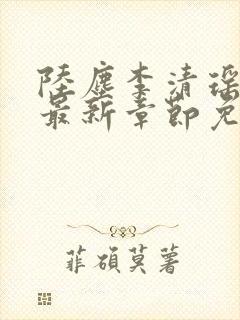 陸塵李清瑶
最新章節免
菲碩莫薯